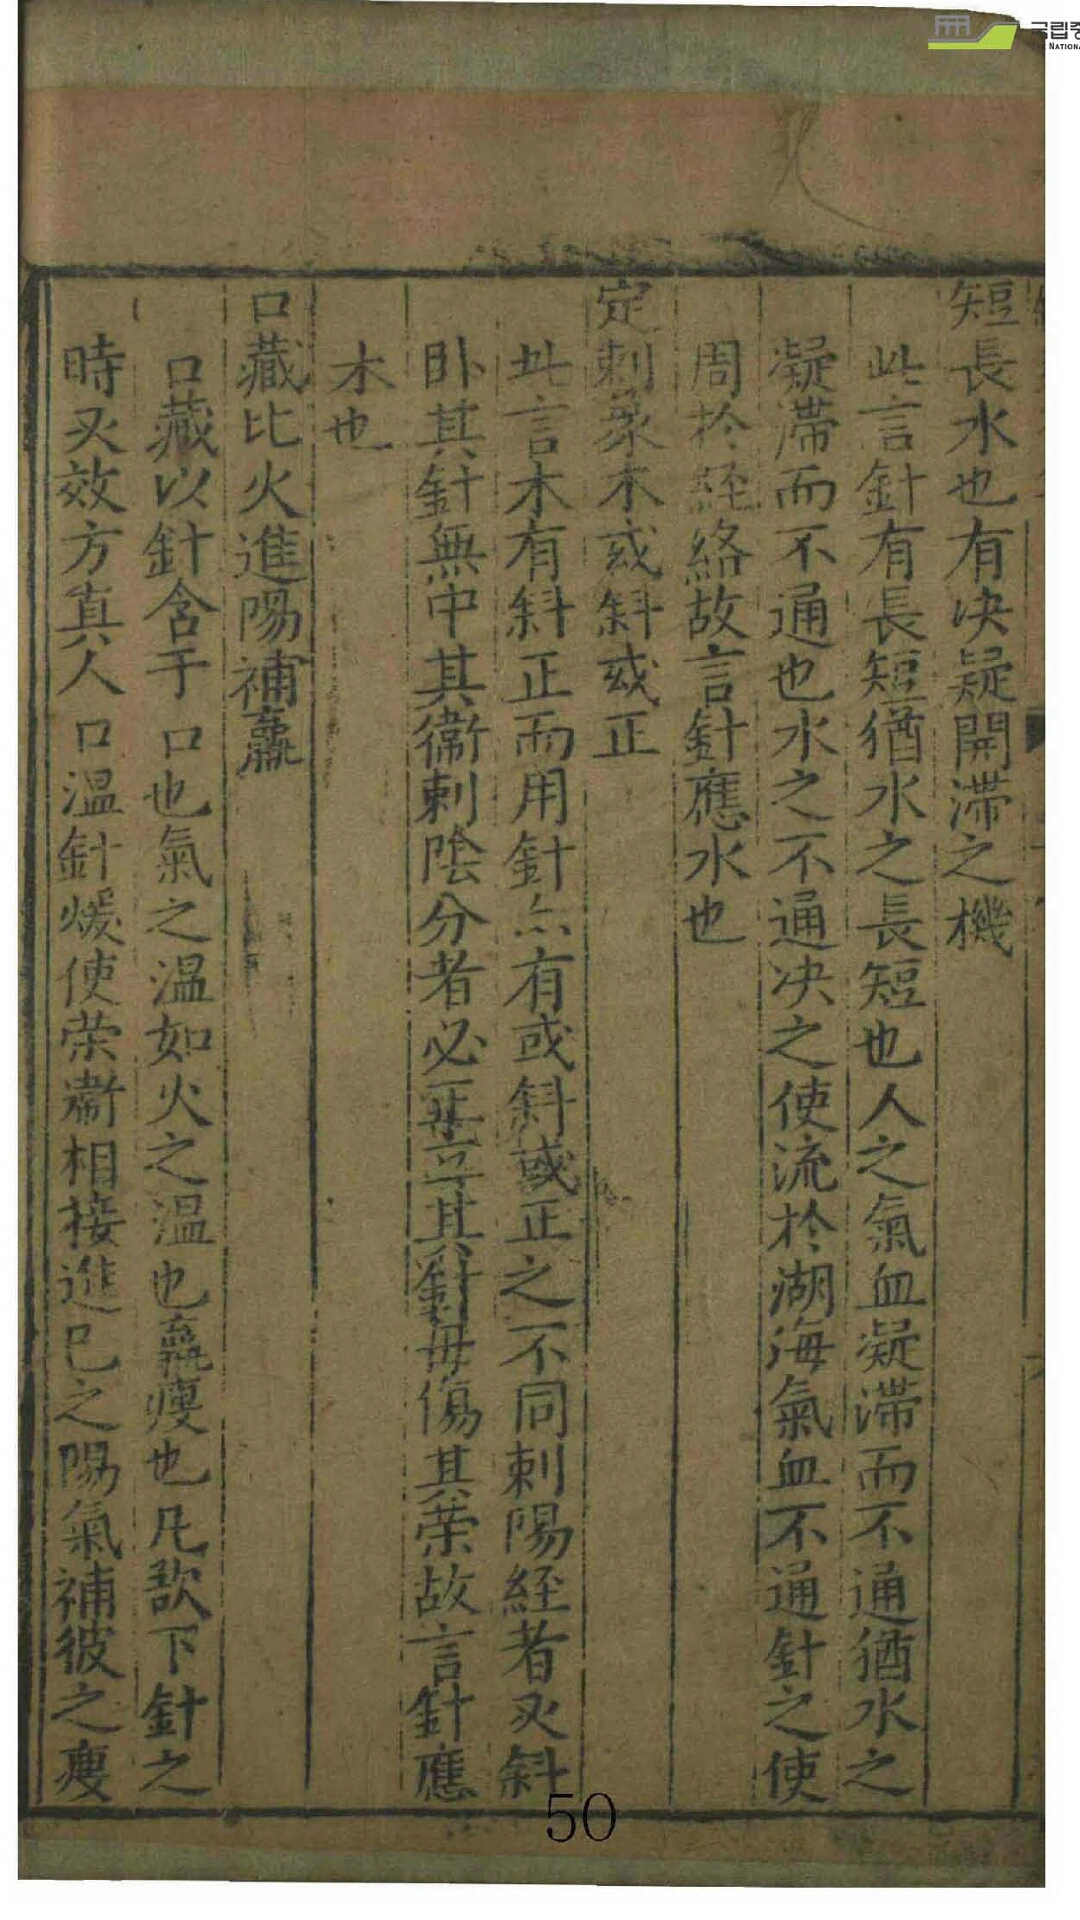 短長水也有决疑開滯之機
此言針有長短猶水之長短也人之氣血凝滯而不通猶水之
凝滯而不通也水之不通决之使流於湖海氣血不通針之使
周於経絡故言針應水也
定刺象木或斜或正
此言木有斜正而用針亦有或斜或正之不同刺陽経者必斜
卧其針無中其衛刺陰分者必正立其針毋傷其荣故言針應
木也
口藏比火進陽補羸
口藏以針含于口也氣之温如火之温也羸痩也凡欲下針之
時必效方真人口温針煖使荣衛相接進已之陽氣補彼之痩
50
국립중
NATIONA